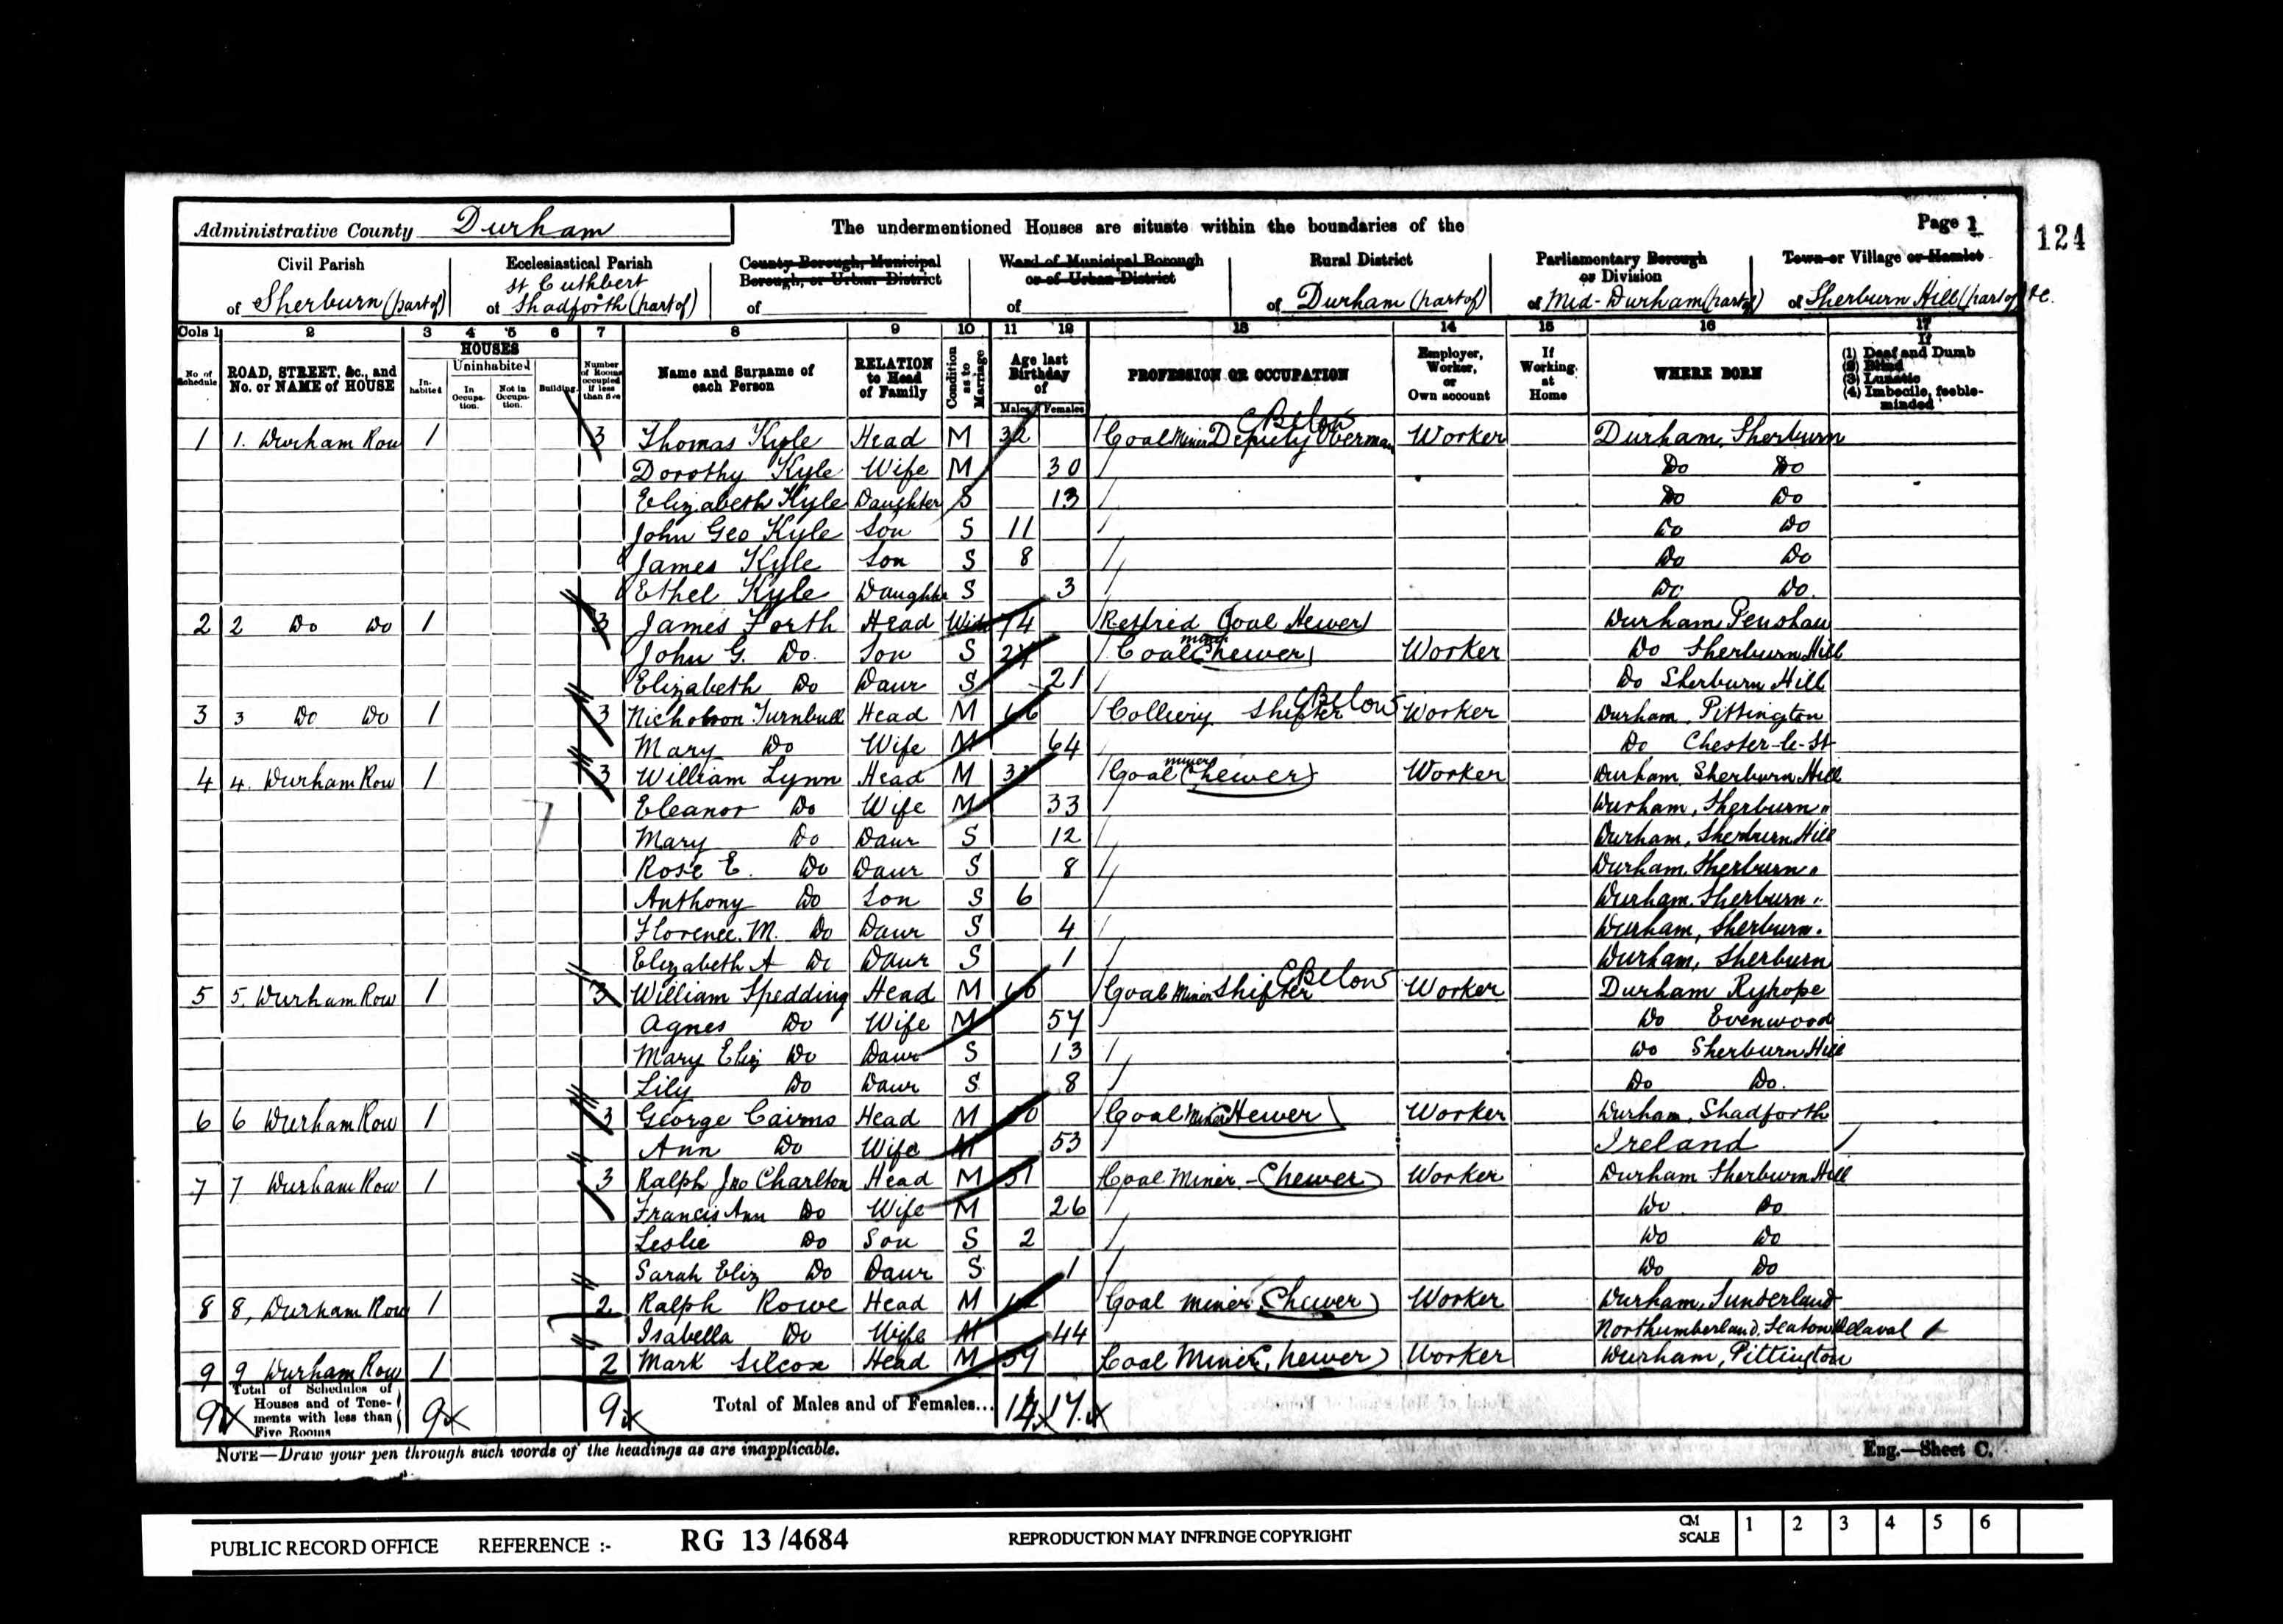 Administrative County Durham
The undermentioned Houses are situate within the boundaries of the
Page 1
124
Civil Parish
of Sherburn (part of)
Ecclesiastical Parish
St Cuthbert
of Shadforth (part of)
County Borough, Municipal
Borough, or Urban District
of
Ward of Municipal Borough
or of Urban District
of
Rural District
of Durham (part of)
Parliamentary Borough
or Division
of Mid-Durham (part of)
Town or Village or Hamlet
of Sherburn Hill (part of) &c.
Cols 1 2 3 4 5 6 7 8 9 10 11 12 13 14 15 16 17
No of Schedule
ROAD, STREET, &c., and No. or NAME of HOUSE
HOUSES
Inhabited
Uninhabited
In Occupation.
Not in Occupation.
Building.
Number of Rooms occupied if less than five
Name and Surname of each Person
RELATION to Head of Family
Condition as to Marriage
Age last Birthday of
Males Females
PROFESSION OR OCCUPATION
Employer, Worker, or Own account
If Working at Home
WHERE BORN
If
(1) Deaf and Dumb
(2) Blind
(3) Lunatic
(4) Imbecile, feeble-minded
1 1. Durham Row 1 3 Thomas Kyle Head M 32 Coal Miner Deputy Overman Below Worker Durham, Sherburn
Dorothy Kyle Wife M 30 Do Do
Elizabeth Kyle Daughter S 13 Do Do
John Geo Kyle Son S 11 Do Do
James Kyle Son S 8 Do Do
Ethel Kyle Daughter S 3 Do Do.
2 2 Do Do 1 3 James Forth Head Wid 74 Retired Coal Hewer Durham Penshaw
John G. Do. Son S Coal miner (hewer) Worker Do Sherburn Hill
Elizabeth Do Daur S 21 Do Sherburn Hill
3 3 Do Do 1 3 Nicholson Turnbull Head M 66 Colliery Shifter Below Worker Durham, Pittington
Mary Do Wife M 64 Do Chester-le-St
4 4. Durham Row 1 3 William Lynn Head M Coal miner (hewer) Worker Durham Sherburn Hill
Eleanor Do Wife M 33 Durham, Sherburn "
Mary Do Daur S 12 Durham, Sherburn Hill
Rose E. Do Daur S 8 Durham, Sherburn "
Anthony Do Son S 6 Durham, Sherburn "
Florence. M. Do Daur S 4 Durham, Sherburn.
Elizabeth A Do Daur S 1 Durham, Sherburn
5 5, Durham Row 1 3 William Spedding Head M 60 Coal Miner Shifter Below Worker Durham Ryhope
Agnes Do Wife M 57 Do Evenwood
Mary Eliz Do Daur S 13 Do Sherburn Hill
Lily Do Daur S 8 Do Do.
6 6 Durham Row 1 3 George Cairns Head M Coal Miner (Hewer) Worker Durham, Shadforth
Ann Do Wife M 53 Ireland
7 7 Durham Row 1 3 Ralph Jno Charlton Head M 31 Coal Miner - (hewer) Worker Durham Sherburn Hill
Francis Ann Do Wife M 26 Do Do
Leslie Do Son S 2 Do Do
Sarah Eliz Do Daur S 1 Do Do
8 8, Durham Row 1 2 Ralph Rowe Head M Coal Miner (hewer) Worker Durham, Sunderland
Isabella Do Wife M 44 Northumberland, Seaton Delaval
9 9 Durham Row 1 2 Mark Silcox Head M Coal Miner (hewer) Worker Durham, Pittington
Total of Schedules of Houses and of Tenements with less than Five Rooms
9 9 9 Total of Males and of Females... 14 17
NOTE—Draw your pen through such words of the headings as are inapplicable.
Eng.—Sheet C.
PUBLIC RECORD OFFICE REFERENCE :- RG 13/4684 REPRODUCTION MAY INFRINGE COPYRIGHT CM SCALE 1 2 3 4 5 6